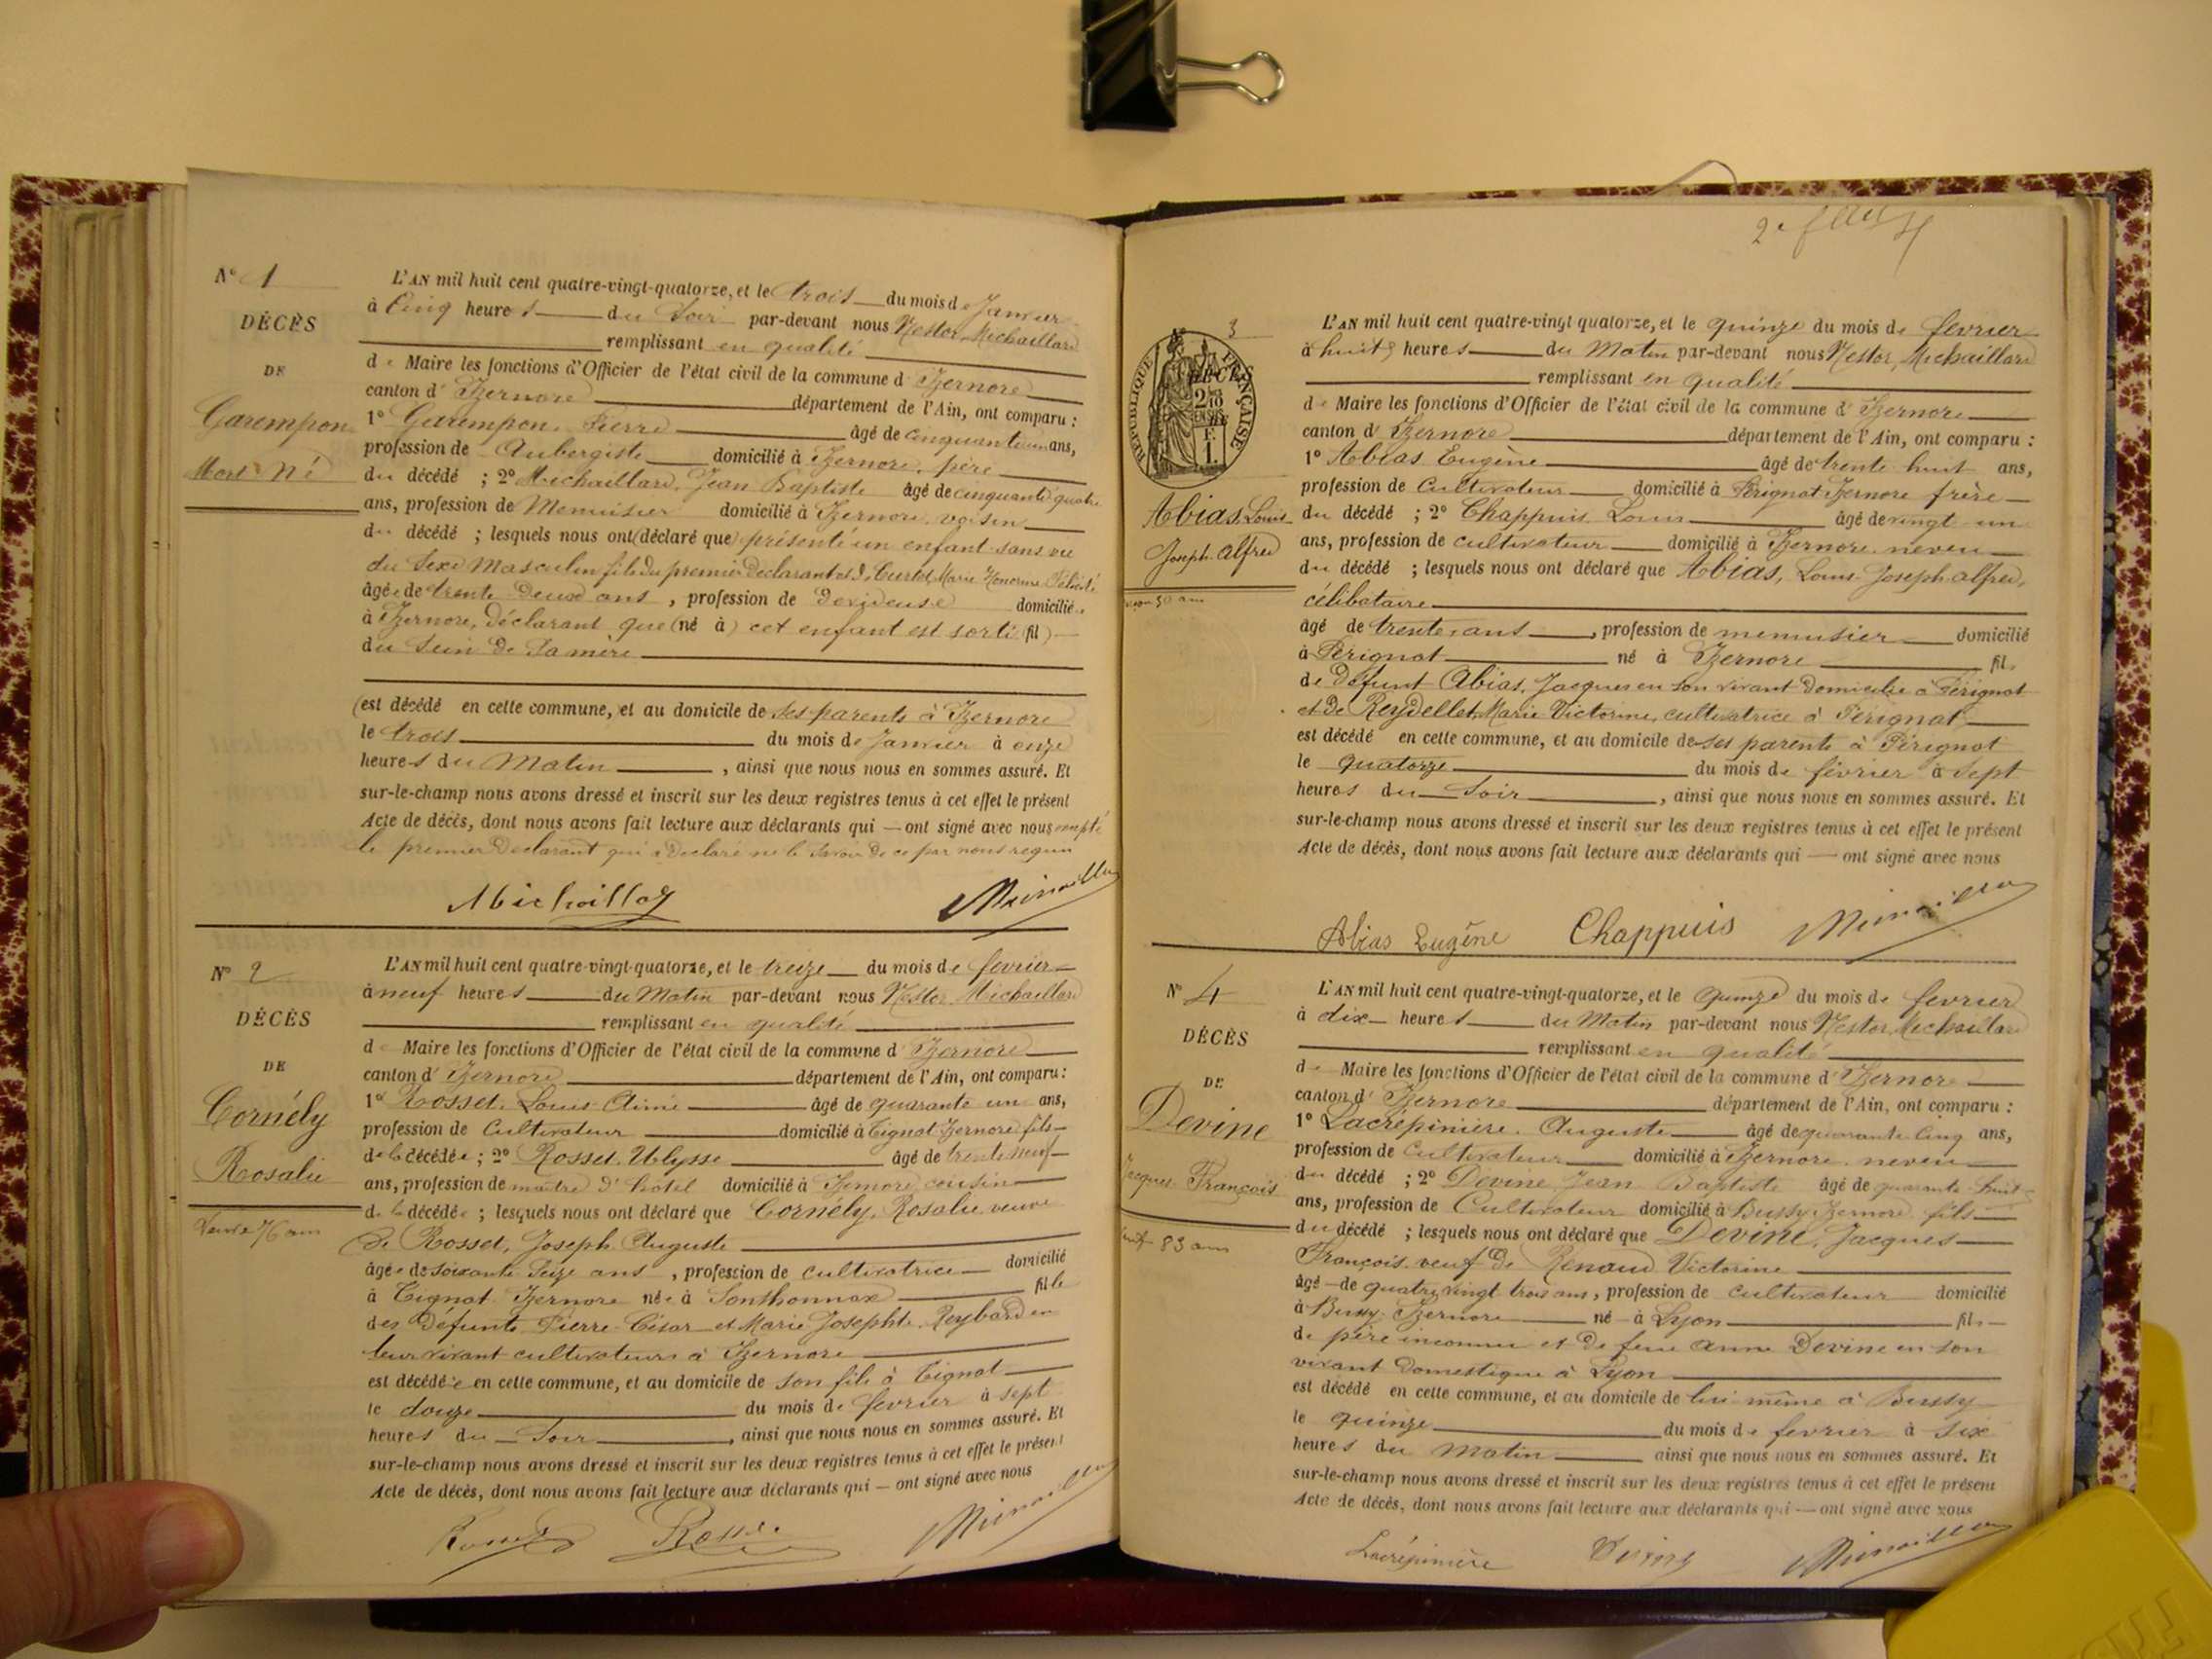 N° 1
DÉCÈS
DE
Garempon
Mort Né
L'AN mil huit cent quatre-vingt-quatorze, et le trois du mois de Janvier
à Cinq heures du Soir par-devant nous Nestor, Michaillard
remplissant en qualité
de Maire les fonctions d'Officier de l'état civil de la commune d'Izernore
canton d'Izernore département de l'Ain, ont comparu :
1° Garempon, Pierre âgé de cinquante un ans,
profession de Aubergiste domicilié à Izernore, père
du décédé ; 2° Michaillard, Jean Baptiste âgé de cinquante quatre
ans, profession de Menuisier domicilié à Izernore, voisin
du décédé ; lesquels nous ont (déclaré que) présenté un enfant sans vie
du Sexe Masculin fils du premier Déclarant et d. Curlet, Marie Honorine Félicité
âgée de trente Deux ans , profession de Dévideuse domiciliée
à Izernore, Déclarant que (né à) cet enfant est sorti (fil)
du Sein de Sa mère
(est décédé en cette commune, et au domicile de ses parents à Izernore
le trois du mois de Janvier à onze
heures du Matin , ainsi que nous nous en sommes assuré. Et
sur-le-champ nous avons dressé et inscrit sur les deux registres tenus à cet effet le présent
Acte de décès, dont nous avons fait lecture aux déclarants qui — ont signé avec nous excepté
le premier Déclarant qui a Déclaré ne le Savoir de ce par nous requis
Michaillard
N° 2
DÉCÈS
DE
Cornély
Rosalie
Veuve 76 ans
L'AN mil huit cent quatre-vingt-quatorze, et le treize du mois de fevrier
à neuf heures du Matin par-devant nous Nestor Michaillard
remplissant en qualité
de Maire les fonctions d'Officier de l'état civil de la commune d'Izernore
canton d'Izernore département de l'Ain, ont comparu :
1° Rosset, Louis Aimé âgé de quarante un ans,
profession de Cultivateur domicilié à Tignat Izernore fils
de la décédée ; 2° Rosset, Ulysse âgé de trente neuf
ans, profession de maître d'hôtel domicilié à Izernore, cousin
de la décédée ; lesquels nous ont déclaré que Cornély, Rosalie, veuve
de Rosset, Joseph Auguste
âgée de soixante Seize ans , profession de cultivatrice domicilié
à Tignat Izernore née à Sonthonnax fille
des Défunts Pierre César et Marie Josephte Reybard en
leur vivant cultivateurs à Izernore
est décédée en cette commune, et au domicile de son fils à Tignat
le douze du mois de fevrier à sept
heures du Soir , ainsi que nous nous en sommes assuré. Et
sur-le-champ nous avons dressé et inscrit sur les deux registres tenus à cet effet le présent
Acte de décès, dont nous avons fait lecture aux déclarants qui — ont signé avec nous
Rosset
3
RÉPUBLIQUE FRANÇAISE
DÉCÈS
Abias Louis
Joseph Alfred
L'AN mil huit cent quatre-vingt quatorze, et le quinze du mois de fevrier
à huit heures du Matin par-devant nous Nestor, Michaillard
remplissant en qualité
de Maire les fonctions d'Officier de l'état civil de la commune d'Izernore
canton d'Izernore département de l'Ain, ont comparu :
1° Abias Eugène âgé de trente huit ans,
profession de Cultivateur domicilié à Pérignat Izernore frère
du décédé ; 2° Chappuis Louis âgé de vingt un
ans, profession de cultivateur domicilié à Izernore neveu
du décédé ; lesquels nous ont déclaré que Abias, Louis Joseph alfred,
célibataire
âgé de trente, ans , profession de menuisier domicilié
à Pérignat né à Izernore fils
de Défunt Abias, Jacques en son vivant Domicilié à Pérignat
et De Reydellet, Marie Victorine, cultivatrice à Pérignat
est décédé en cette commune, et au domicile de ses parents à Pérignat
le quatorze du mois de février à Sept
heures du Soir , ainsi que nous nous en sommes assuré. Et
sur-le-champ nous avons dressé et inscrit sur les deux registres tenus à cet effet le présent
Acte de décès, dont nous avons fait lecture aux déclarants qui — ont signé avec nous
Abias Eugène Chappuis
N° 4
DÉCÈS
DE
Devine
Jacques François
veuf 83 ans
L'AN mil huit cent quatre-vingt-quatorze, et le quinze du mois de fevrier
à dix heures du Matin par-devant nous Nestor, Michaillard
remplissant en qualité
de Maire les fonctions d'Officier de l'état civil de la commune d'Izernore
canton d'Izernore département de l'Ain, ont comparu :
1° Lacrépinière, Auguste âgé de quarante cinq ans,
profession de Cultivateur domicilié à Izernore, neveu
du décédé ; 2° Devine Jean Baptiste âgé de quarante huit
ans, profession de Cultivateur domicilié à Bussy Izernore fils
du décédé ; lesquels nous ont déclaré que Devine, Jacques
François, veuf de Renaud Victorine
âgé de quatre vingt trois ans, profession de cultivateur domicilié
à Bussy Izernore né à Lyon fils
de père inconnu et de feue Anne Devine en son
vivant Domestique à Lyon
est décédé en cette commune, et au domicile de lui même à Bussy
le quinze du mois de fevrier à six
heures du Matin ainsi que nous nous en sommes assuré. Et
sur-le-champ nous avons dressé et inscrit sur les deux registres tenus à cet effet le présent
Acte de décès, dont nous avons fait lecture aux déclarants qui — ont signé avec nous
Lacrépinière Devine